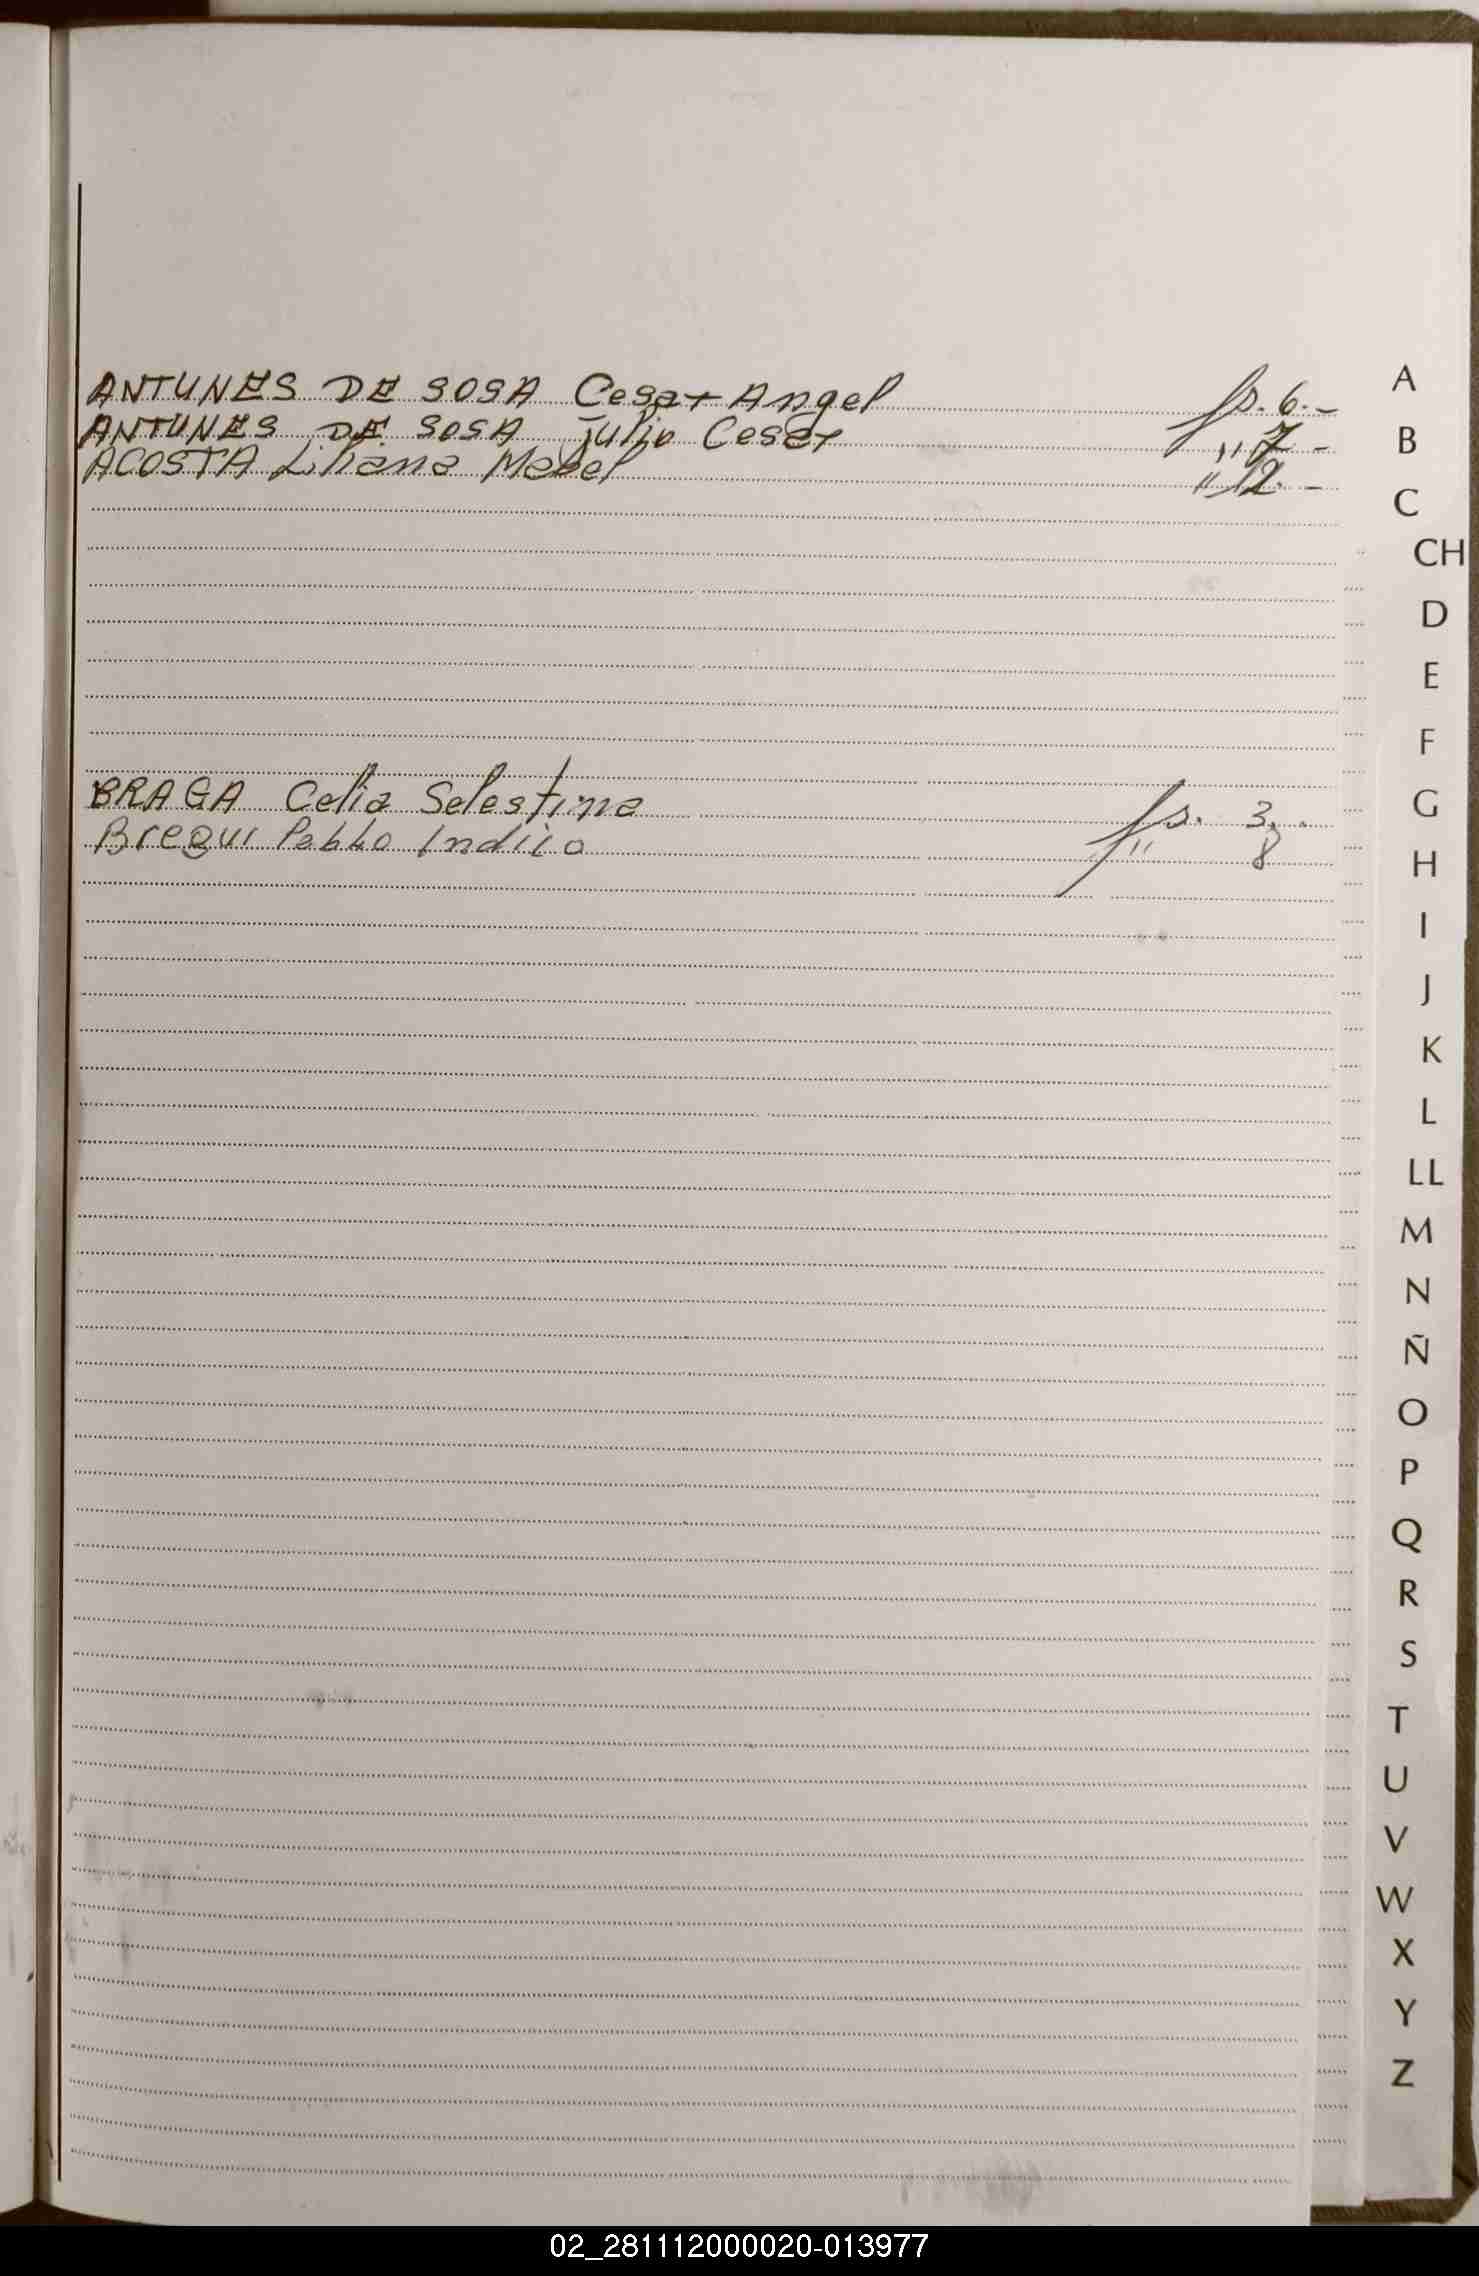 ANTUNES DE SOSA Cesar Angel fs. 6.-
ANTUNES DE SOSA Julio Cesar " 7 -
ACOSTA Liliana Mabel " 12. -
BRAGA Celia Selestina fs. 3.
Bregui Pablo Indiio " 8
A
B
C
CH
D
E
F
G
H
I
J
K
L
LL
M
N
Ñ
O
P
Q
R
S
T
U
V
W
X
Y
Z
02_281112000020-013977